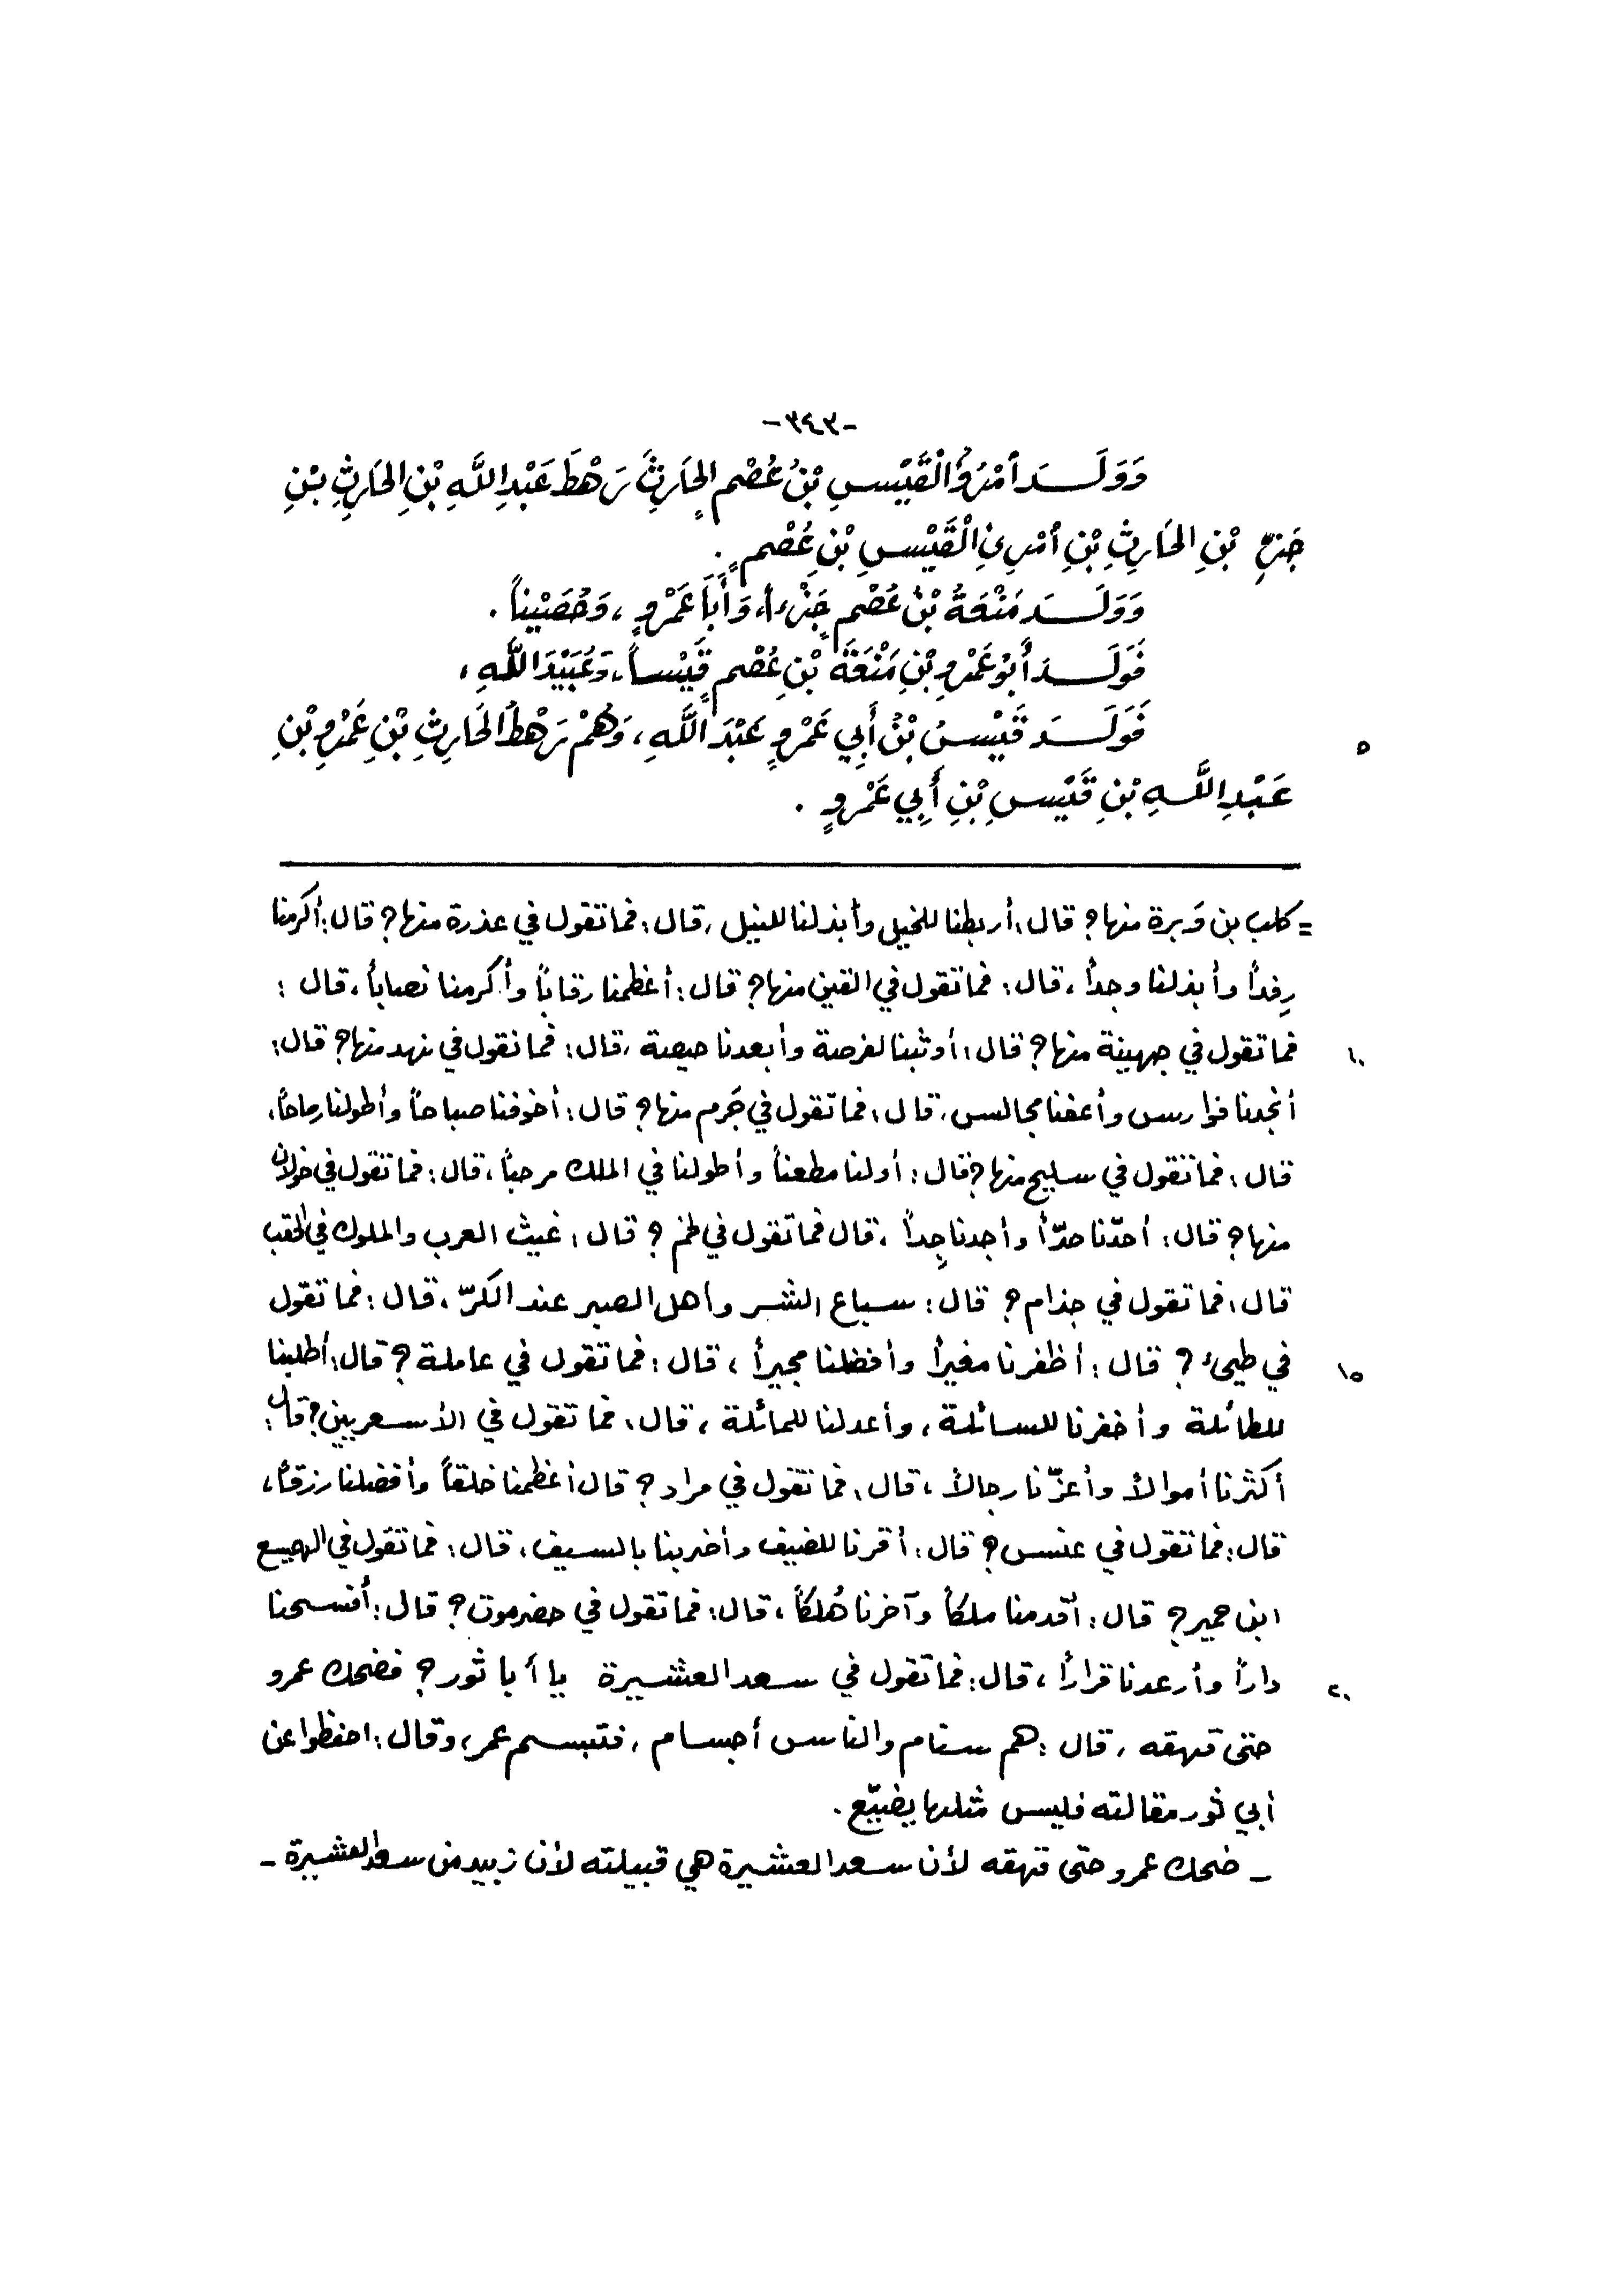 -٣٤٣-
وَوَلَـــدَ اْمْرُؤُ الْقَيْسِ بْنُ عُصْمٍ الحَارِثَ رَهْطَ عَبْدِ اللَّهِ بْنِ الحَارِثِ بْنِ
جَزْءِ بْنِ الحَارِثِ بْنِ اْمْرِئِ الْقَيْسِ بْنِ عُصْمٍ .
وَوَلَـــدَ مَنْعَةُ بْنُ عُصْمٍ جَزْءاً، وَأَبَا عَمْرٍو ، وَحُصَيْناً .
فَوَلَـــدَ أَبُو عَمْرِو بْنِ مَنْعَةَ بْنِ عُصْمٍ قَيْساً، وَعُبَيْدَ اللَّهِ ،
فَوَلَـــدَ قَيْسُ بْنُ أَبِي عَمْرٍو عَبْدَ اللَّهِ ، وَهُمْ رَهْطُ الحَارِثِ بْنِ عَمْرِو بْنِ
٥
عَبْدِ اللَّهِ بْنِ قَيْسِ بْنِ أَبِي عَمْرٍو .
= كلب بن وَبرة منها؟ قال: أربطنا للخيل وأبذلنا للنيل، قال: فما تقول في عذرة منها؟ قال: أكرمنا
رِفداً وأبذلنا وجداً، قال: فما تقول في القين منها؟ قال: أعظمنا رقاباً وأكرمنا نصاباً، قال :
فما تقول في جهينة منها؟ قال: أوثبنا لفرصة وأبعدنا صيحة، قال: فما تقول في نهد منها؟ قال:
١٠
أنجدنا فوارس وأعفنا مجالس، قال: فما تقول في جَرم منها؟ قال: أخوفنا صباحاً وأطولنا رماحاً،
قال: فما تقول في سليح منها؟ قال: أولنا مطعناً وأطولنا في الملك مرحباً، قال: فما تقول في خولان
منها؟ قال: أحدّنا حدّاً وأجدنا جِداً ، قال فما تقول في لخم؟ قال: غيث العرب والملوك في الحقب
قال: فما تقول في جذام؟ قال: سباع الشر وأهل الصبر عند الكرّ ، قال: فما تقول
في طيئ؟ قال: أظفرنا مغيراً وأفضلنا مجيراً ، قال: فما تقول في عاملة؟ قال: أطلبنا
١٥
للطائلة وأخفرنا للسائلة، وأعدلنا للمائلة ، قال: فما تقول في الأسعريين؟ قال:
أكثرنا أموالاً وأعزّنا رجالاً ، قال: فما تقول في مراد؟ قال أعظمنا خلقاً وأفضلنا رزقاً،
قال: فما تقول في عنس؟ قال: أقرنا للضيف وأضربنا بالسيف، قال: فما تقول في الهميسع
ابن حمير؟ قال: أقدمنا ملكاً وآخرنا هُلكاً ، قال: فما تقول في حضرموت؟ قال: أفسحنا
داراً وأرعدنا قراراً ، قال: فما تقول في سعد العشيرة يا أبا ثور؟ فضحك عمرو
٢٠
حتى قهقه ، قال : هم سنام والناس أجسام ، فتبسم عمر، وقال: احفظوا عن
أبي ثور مقالته فليس مثلها يضيّع .
- ضحك عمرو حتى قهقه لأن سعد العشيرة هي قبيلته لأن زبيد من سعد العشيرة -